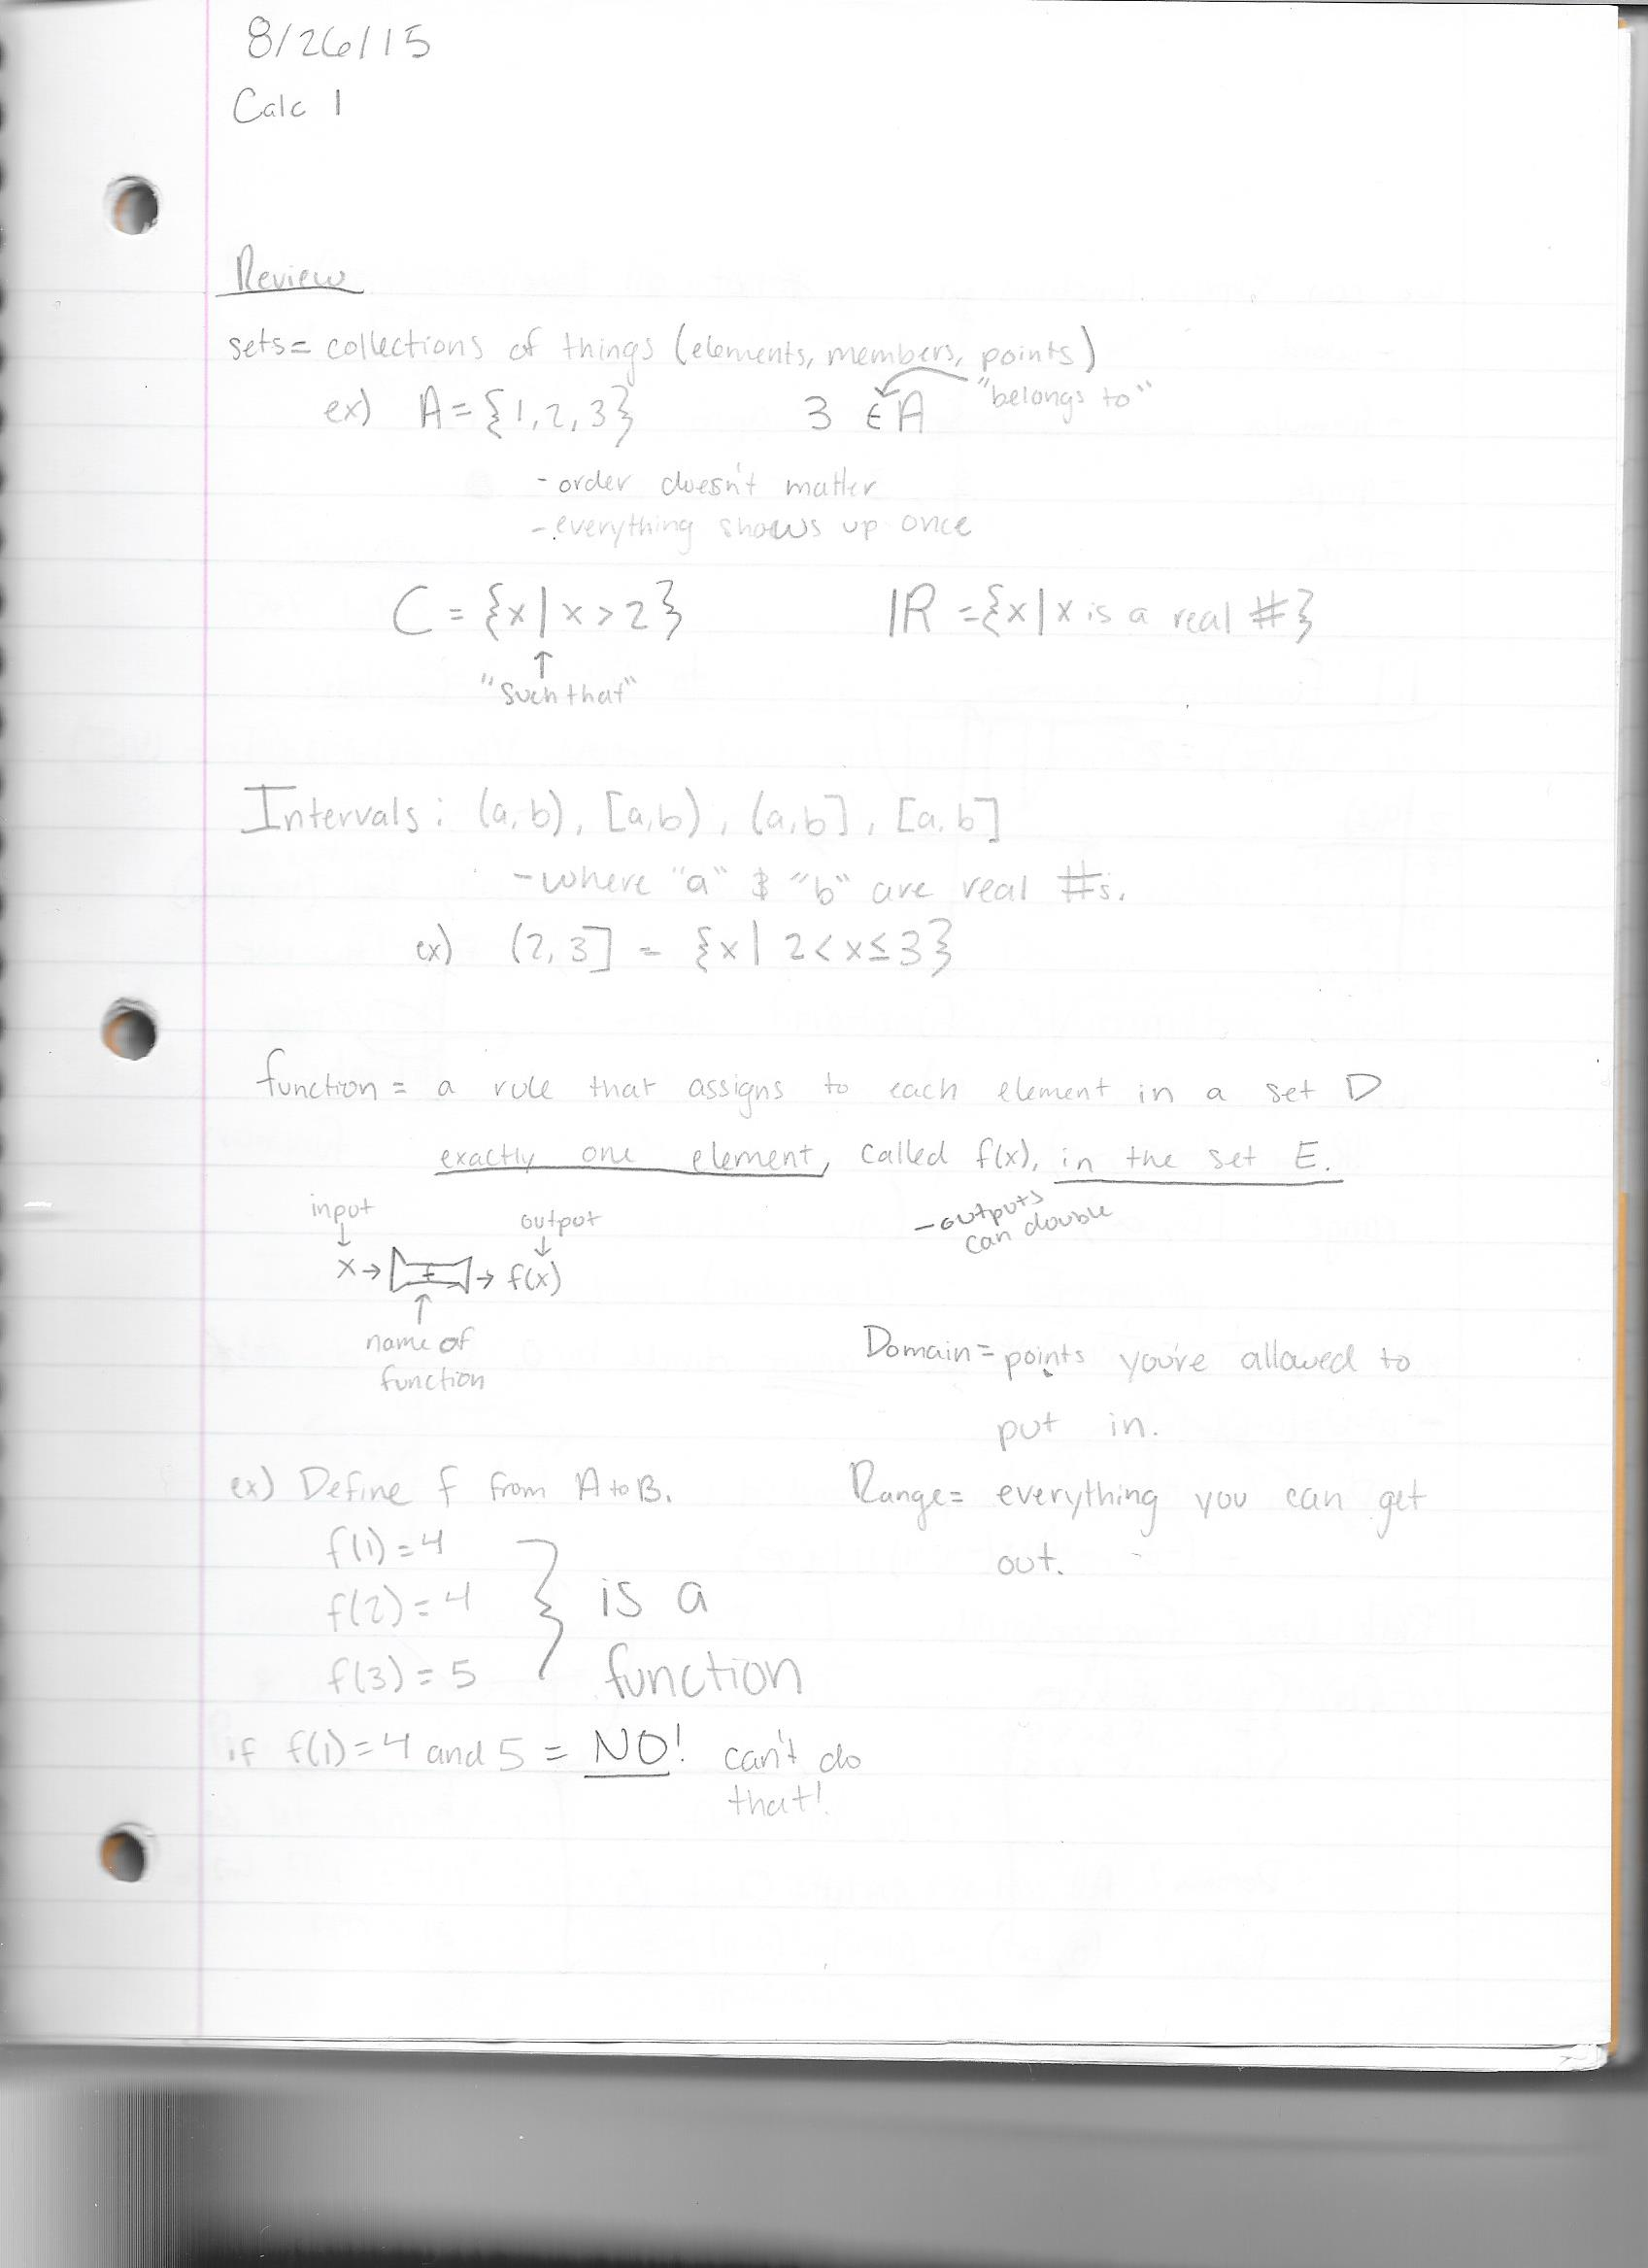 8/26/15
Calc 1
Review
sets = collections of things (elements, members, points)
ex) A = {1, 2, 3} 3 ∈ A "belongs to"
- order doesn't matter
- everything shows up once
C = {x | x > 2} ℝ = {x | x is a real #}
↑
"such that"
Intervals: (a, b), [a, b), (a, b], [a, b]
- where "a" & "b" are real #s.
ex) (2, 3] = {x | 2 < x ≤ 3}
function = a rule that assigns to each element in a set D
exactly one element, called f(x), in the set E.
- outputs
can double
input output
↓ ↓
x → f → f(x)
↑
name of
function
Domain = points you're allowed to
put in.
Range = everything you can get
out.
ex) Define f from A to B.
f(1) = 4
f(2) = 4
f(3) = 5
} is a
function
if f(1) = 4 and 5 = NO! can't do
that!